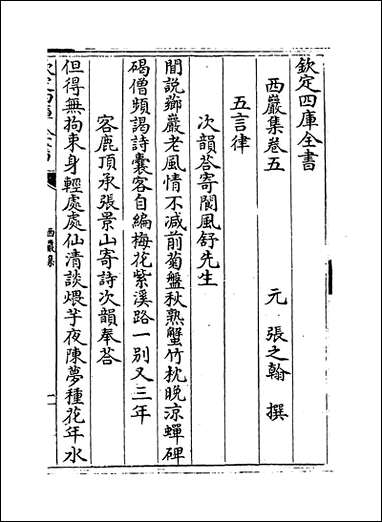 欽定四庫全書
西巖集卷五
元 張之翰 撰
五言律
次韻答寄閬風舒先生
聞說薌巖老風情不减前菊盤秋熟蟹竹枕晚涼蟬碑
碣僧頻謁詩囊客自編梅花紫溪路一别又三年
客鹿頂承張景山寄詩次韻奉答
但得無拘束身輕處處仙清談煨芋夜陳夢種花年水
欽定四庫全書
西巖集
一